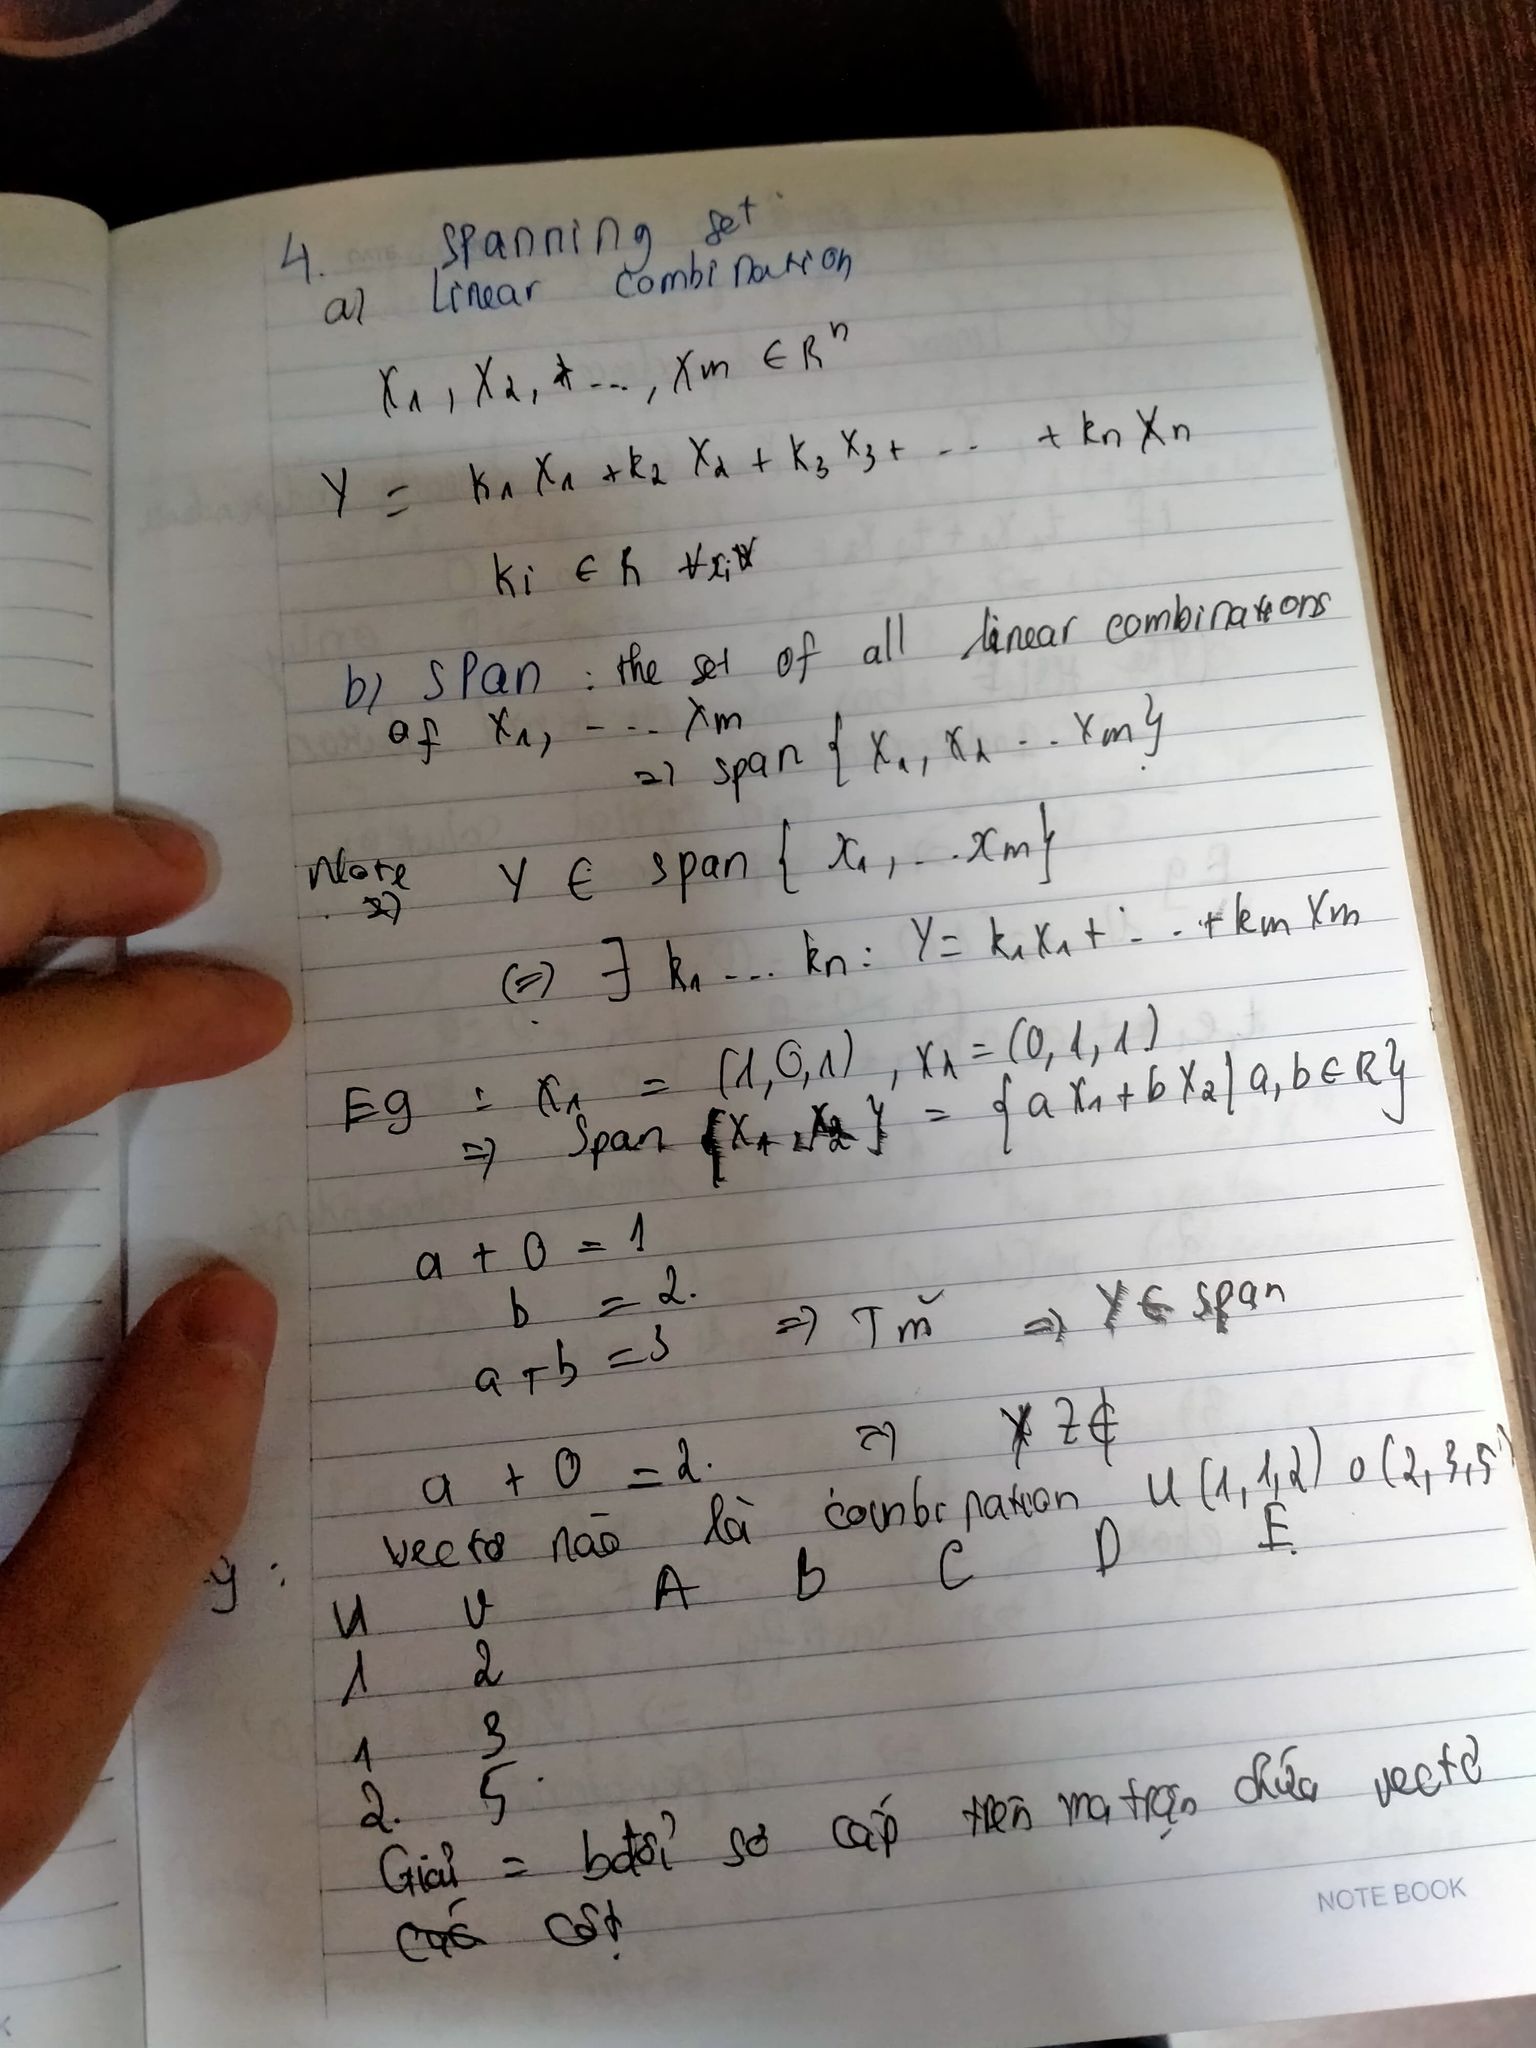 4. Spanning set
a) Linear combination
X₁, X₂, ..., Xm ∈ Rⁿ
Y = k₁X₁ + k₂X₂ + k₃X₃ + ... + knXn
ki ∈ R
b) Span : the set of all linear combinations
of X₁, ... Xm
=> span { X₁, X₂ ... Xm }
Note Y ∈ span { X₁, ... Xm }
(=) ∃ k₁ ... kn : Y = k₁X₁ + ... + kmXm
Eg : X₁ = (1,0,1), X₁ = (0,1,1)
=> Span {X₁, X₂} = {aX₁ + bX₂ | a, b ∈ R}
a + 0 = 1
b = 2.
a + b = 3 => Tm̃ => Y ∈ span
a + 0 = 2. => Z ∉
vectơ nào là combination u (1,1,2) v (2,3,5)
y :
u v A B C D E
1 2
1 3
2. 5
Giải = bđổi sơ cấp trên ma trận chứa vectơ
cột
NOTE BOOK